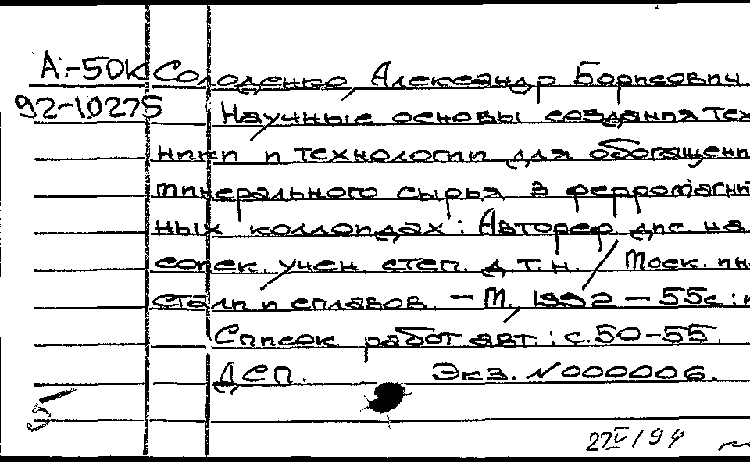 А-50К Солоденко, Александр Борисович.
92-10275 Научные основы создания тех
ники и технологии для обогащени
минерального сырья в ферромагнит
ных коллоидах: Автореф. дис. на
соиск. учен. степ. д.т.н. / Моск. ин
стали и сплавов. - М., 1992 - 55с.:
Список работ авт.: с.50-55
ДСП. Экз. N000006.
5
27 V 194